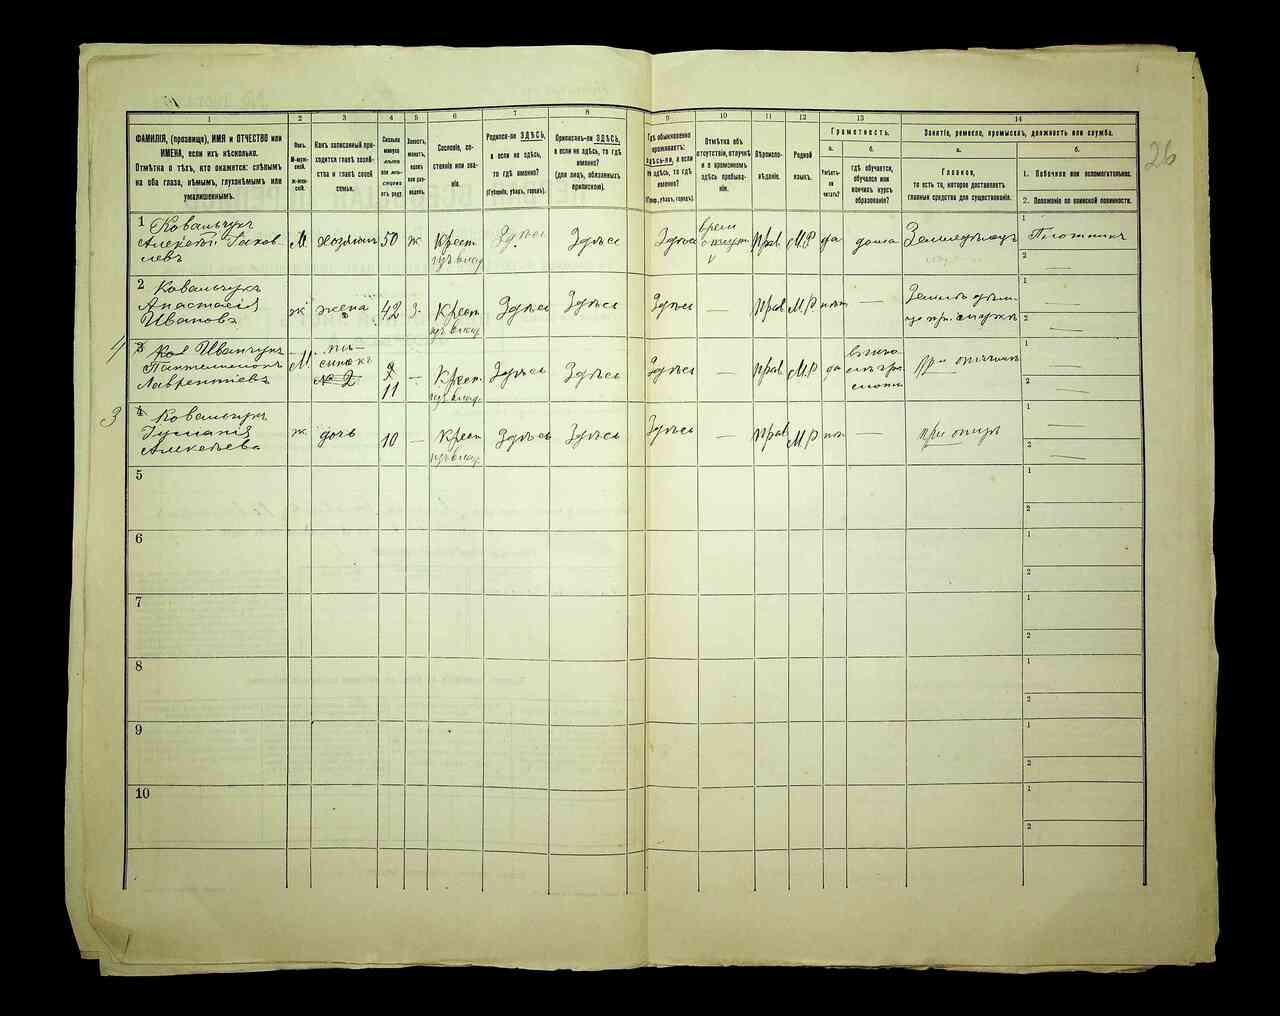 1
2
3
4
5
6
7
8
9
10
11
12
13
14
ФАМИЛІЯ, (прозвище), ИМЯ и ОТЧЕСТВО или
ИМЕНА, если ихъ нѣсколько.
Отмѣтка о тѣхъ, кто окажется: слѣпымъ
на оба глаза, нѣмымъ, глухонѣмымъ или
умалишеннымъ.
Полъ.
М-муж-
ской.
ж-жен-
скій.
Какъ записанный при-
ходится главѣ хозяй-
ства и главѣ своей
семьи.
Сколько
минуло
лѣтъ
или мѣ-
сяцевъ
отъ роду.
Холостъ,
женатъ,
вдовъ
или раз-
веденъ.
Сословіе, со-
стояніе или зва-
ніе.
Родился-ли ЗДѢСЬ,
а если не здѣсь,
то гдѣ именно?
(Губернія, уѣздъ, городъ).
Приписанъ-ли ЗДѢСЬ,
а если не здѣсь, то гдѣ
именно?
(для лицъ, обязанныхъ
припискою).
Гдѣ обыкновенно
проживаетъ:
здѣсь-ли, а если
не здѣсь, то гдѣ
именно?
(Губер., уѣздъ, городъ).
Отмѣтка объ
отсутствіи, отлучкѣ
и о временномъ
здѣсь пребыва-
ніи.
Вѣроиспо-
вѣданіе.
Родной
языкъ.
Грамотность.
а.
б.
Умѣетъ-
ли
читать?
гдѣ обучается,
обучался или
кончилъ курсъ
образованія?
Занятіе, ремесло, промыселъ, должность или служба.
а.
б.
Главное,
то есть то, которое доставляетъ
главныя средства для существованія.
1. Побочное или вспомогательное.
2. Положеніе по воинской повинности.
26
1 Ковальчукъ
Алексѣй Яков
левъ
М хозяинъ 50 ж Крест Здѣсь Здѣсь Здѣсь
Прав М.Р да дома Земледѣлецъ
1 Плотникъ
2 —
2 Ковальчукъ
Анастасія
Иванова
ж жена 42 З. Крест Здѣсь Здѣсь Здѣсь — Прав М.Р нѣтъ —
1 —
2 —
4 3 Ков Иванчукъ
Пантелемонъ
Лаврентьевъ
М № 2 9 11 — Крест. Здѣсь Здѣсь Здѣсь — Прав М.Р да
1 —
2 —
3 4 Ковальчукъ
Алексѣева
ж дочь 10 — Крест Здѣсь Здѣсь Здѣсь — Прав М.Р нѣт при отцѣ
1 —
2 —
5
1
2
6
1
2
7
1
2
8
1
2
9
1
2
10
1
2